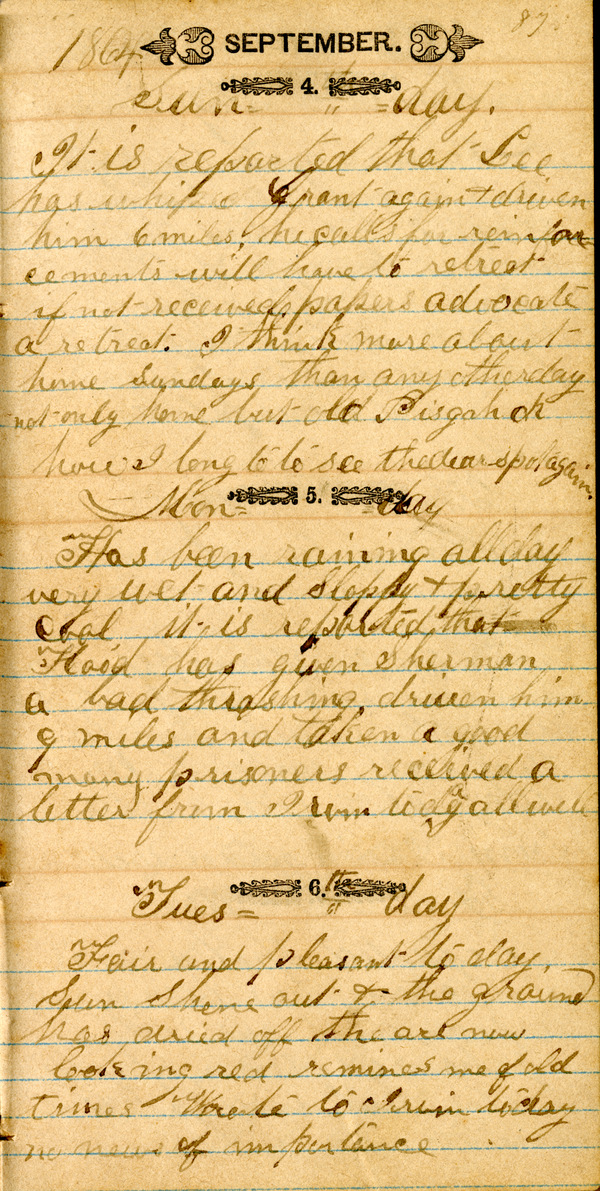 1864 SEPTEMBER. 87
4.
Sun = th = day.
It is reported that Lee
has whiped Grant again + driven
him 6 miles. he calls for reinfor
cements will have to retreat
if not received, papers advocate
a retreat. I think more about
home Sundays than any other day
not only home but old Pisgah ch
how I long to to see the dear spot again.
5.
Mon = day
Has been raining all day
very wet and sloppy + pretty
cool it is reported that
Hood has given Sherman
a bad thrashing, driven him
9 miles and taken a good
many prisoners received a
letter from Irvin today all well
6. th
Tues = day
Fair and pleasant to day
Sun Shone out & the ground
has dried off the are now
looking red remines me of old
times Wrote to Irvin today
no news of importance